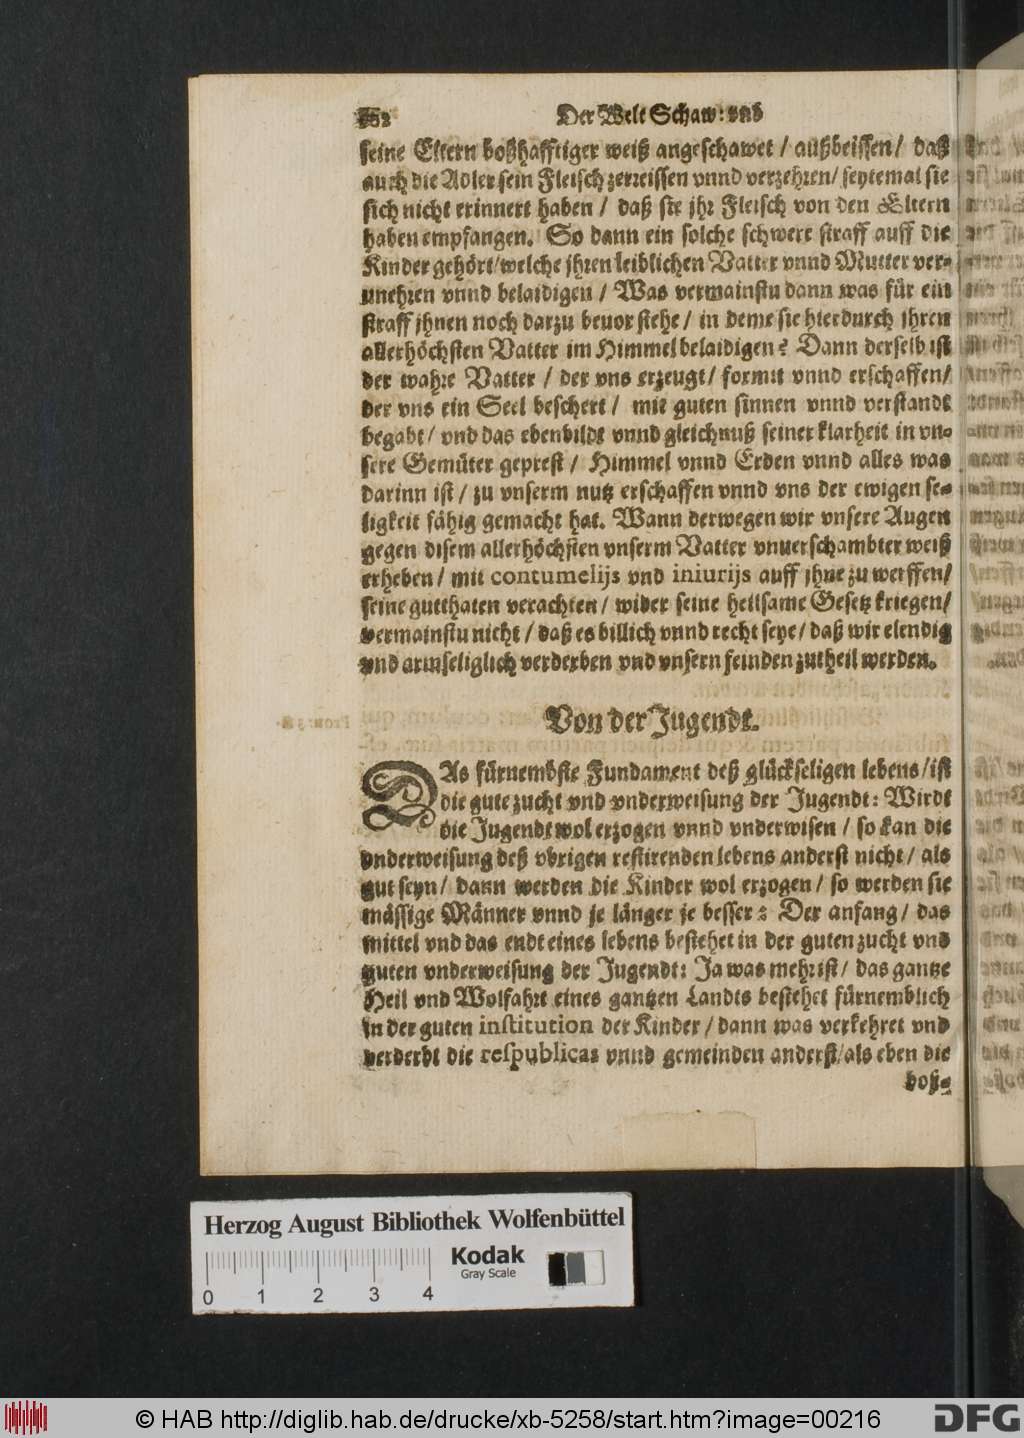 Der Welt Schaw: vnd
seine Eltern boßhafftiger weiß angeschawet / außbeissen / daß
auch die Adler sein Fleisch zerreissen vnnd verzehren / seytemal sie
sich nicht erinnert haben / daß sie jhr Fleisch von den Eltern
haben empfangen. So dann ein solche schwere straff auff die
Kinder gehört / welche jhren leiblichen Vatter vnnd Mutter ver-
unehren vnnd belaidigen / Was vermainstu dann was für ein
straff jhnen noch darzu beuor stehe / in deme sie hierdurch jhren
allerhöchsten Vatter im Himmel belaidigen? Dann derselb ist
der wahre Vatter / der vns erzeugt / formit vnnd erschaffen /
der vns ein Seel beschert / mit guten sinnen vnnd verstandt
begabt / vnd das ebenbildt vnnd gleichnuß seiner klarheit in vn-
sere Gemüter geprest / Himmel vnnd Erden vnnd alles was
darinn ist / zu vnserm nutz erschaffen vnnd vns der ewigen se-
ligkeit fähig gemacht hat. Wann derwegen wir vnsere Augen
gegen disem allerhöchsten vnserm Vatter vnuerschambter weiß
erheben / mit contumelijs vnd iniurijs auff jhne zu werffen /
seine gutthaten verachten / wider seine heilsame Gesetz kriegen /
vermainstu nicht / daß es billich vnnd recht seye / daß wir elendig
vnd armseliglich verderben vnd vnsern feinden zutheil werden.
Von der Jugendt.
DAs fürnembste Fundament deß glückseligen lebens / ist
die gute zucht vnd vnderweisung der Jugendt: Wirdt
die Jugendt wol erzogen vnnd vnderwisen / so kan die
vnderweisung deß vbrigen restirenden lebens anderst nicht / als
gut seyn / dann werden die Kinder wol erzogen / so werden sie
mässige Männer vnnd je länger je besser: Der anfang / das
mittel vnd das endt eines lebens bestehet in der guten zucht vnd
guten vnderweisung der Jugendt: Ja was mehr ist / das gantze
Heil vnd Wolfahrt eines gantzen Landts bestehet fürnemblich
in der guten institution der Kinder / dann was verkehret vnd
verderbt die respublicas vnnd gemeinden anderst / als eben die
boß-
Herzog August Bibliothek Wolfenbüttel
Kodak
Gray Scale
0 1 2 3 4
© HAB http://diglib.hab.de/drucke/xb-5258/start.htm?image=00216
DFG